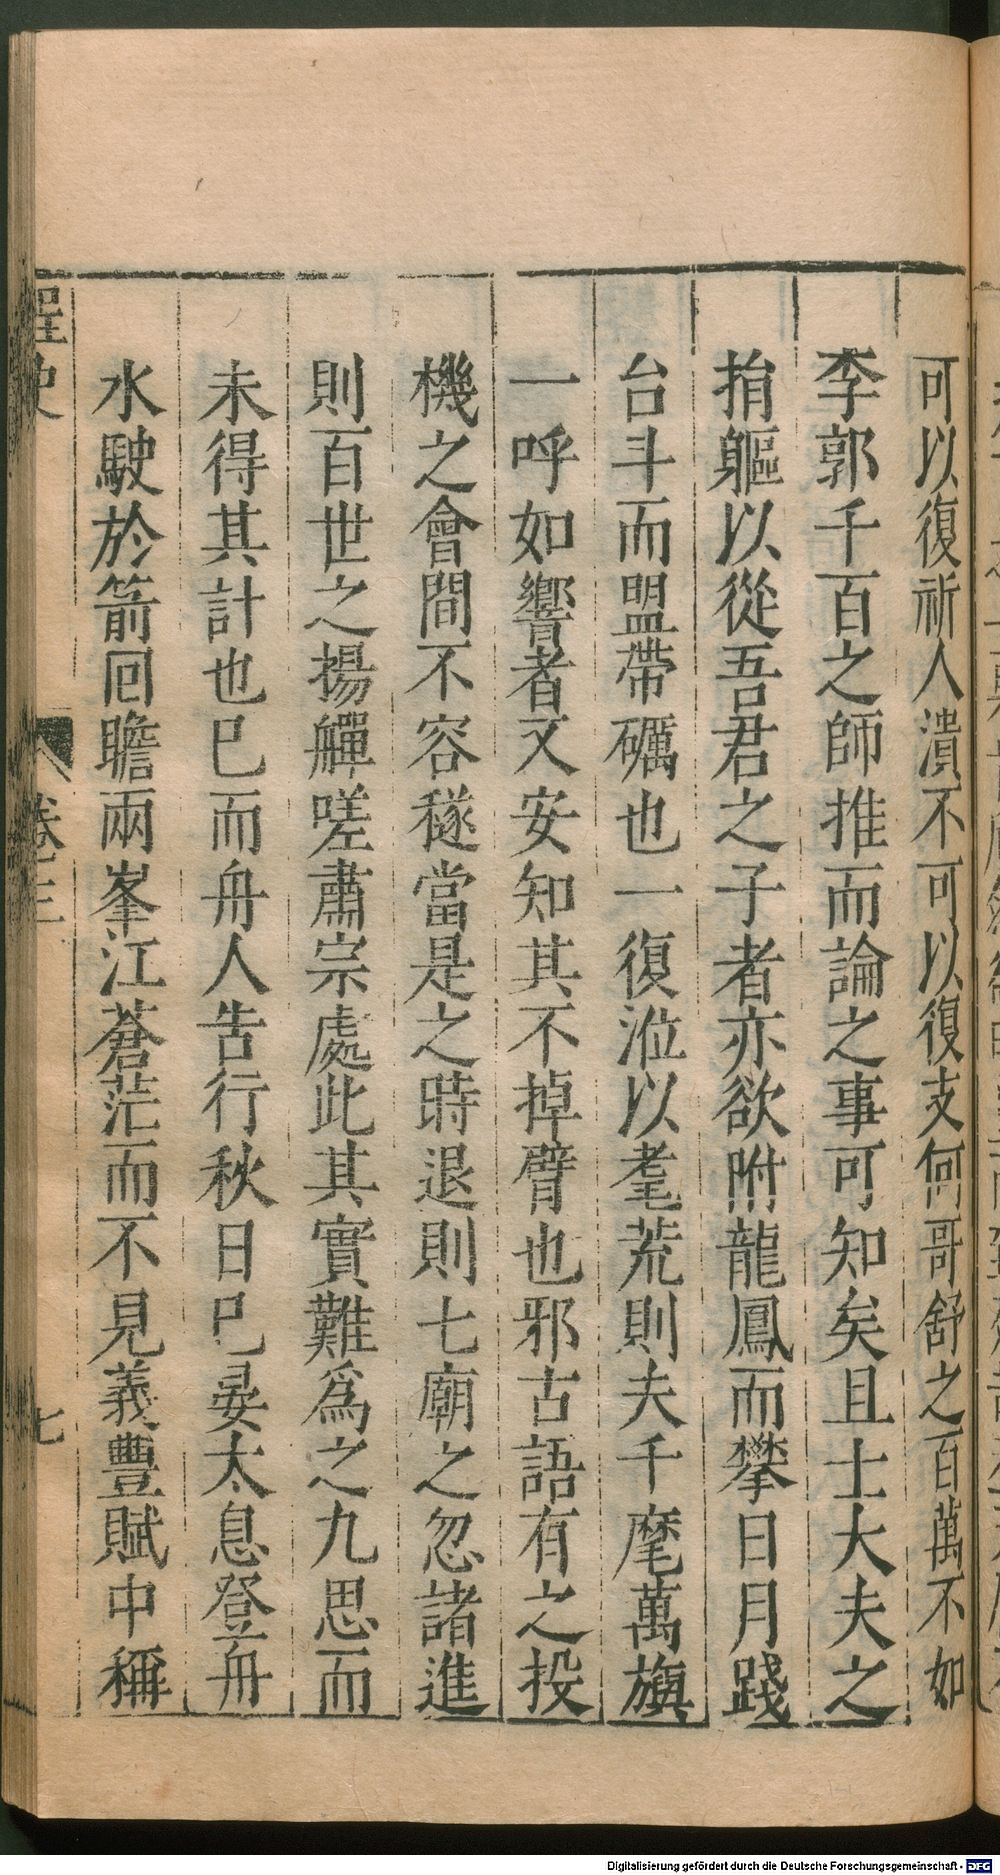 可以復祈人潰不可以復支何哥舒之百萬不如
李郭千百之師推而論之事可知矣且士大夫之
捐軀以從吾君之子者亦欲附龍鳳而攀日月踐
台斗而盟帶礪也一復涖以耄荒則夫千麾萬旗
一呼如響者又安知其不掉臂也邪古語有之投
機之會間不容穟當是之時退則七廟之忽諸進
則百世之揚觶嗟肅宗處此其實難為之九思而
未得其計也已而舟人告行秋日已晏太息登舟
水駛於箭回瞻兩峯江蒼茫而不見義豐賦中稱
桯史
卷三
七
Digitalisierung gefördert durch die Deutsche Forschungsgemeinschaft - DFG